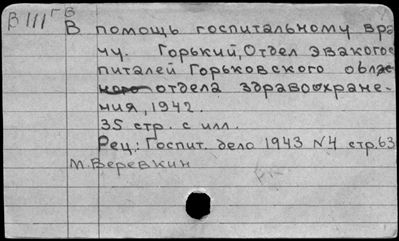 В III ГБ
В помощь госпитальному вра
чу. Горький, Отдел эвакогос
питалей Горьковского обла
отдела здравоохране-
ния, 1942.
35 стр. с илл.
Рец.: Госпит. дело 1943 №4 стр. 63
М. Веревкин